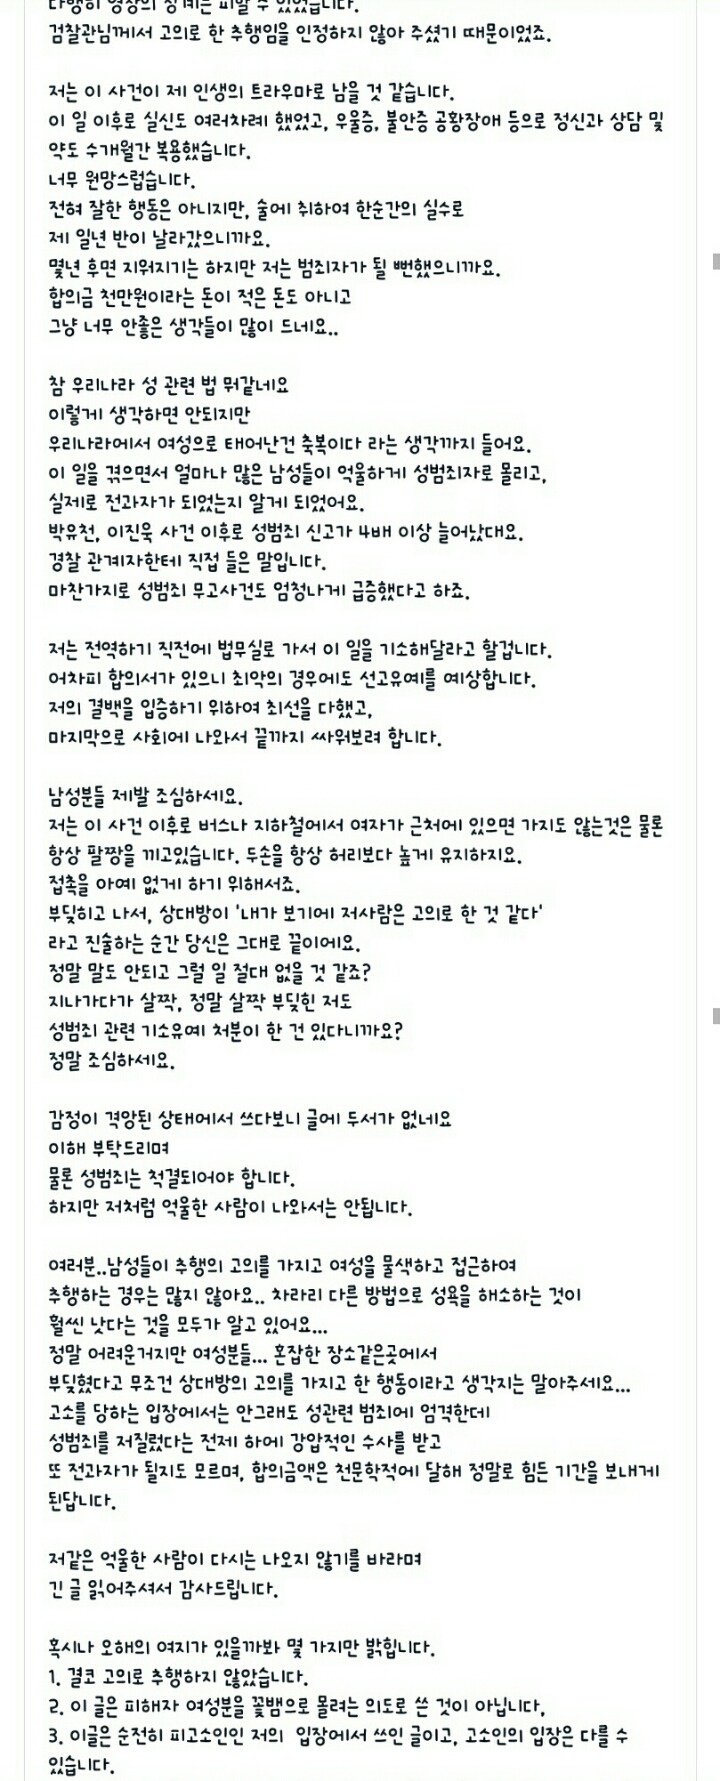 다행히 영창의 징계는 피할 수 있었습니다.
검찰관님께서 고의로 한 추행임을 인정하지 않아 주셨기 때문이었죠.
저는 이 사건이 제 인생의 트라우마로 남을 것 같습니다.
이 일 이후로 실신도 여러차례 했었고, 우울증, 불안증 공황장애 등으로 정신과 상담 및
약도 수개월간 복용했습니다.
너무 원망스럽습니다.
전혀 잘한 행동은 아니지만, 술에 취하여 한순간의 실수로
제 일년 반이 날라갔으니까요.
몇년 후면 지워지기는 하지만 저는 범죄자가 될 뻔했으니까요.
합의금 천만원이라는 돈이 적은 돈도 아니고
그냥 너무 안좋은 생각들이 많이 드네요..
참 우리나라 성 관련 법 뭐같네요
이렇게 생각하면 안되지만
우리나라에서 여성으로 태어난건 축복이다 라는 생각까지 들어요.
이 일을 겪으면서 얼마나 많은 남성들이 억울하게 성범죄자로 몰리고,
실제로 전과자가 되었는지 알게 되었어요.
박유천, 이진욱 사건 이후로 성범죄 신고가 4배 이상 늘어났대요.
경찰 관계자한테 직접 들은 말입니다.
마찬가지로 성범죄 무고사건도 엄청나게 급증했다고 하죠.
저는 전역하기 직전에 법무실로 가서 이 일을 기소해달라고 할겁니다.
어차피 합의서가 있으니 최악의 경우에도 선고유예를 예상합니다.
저의 결백을 입증하기 위하여 최선을 다했고,
마지막으로 사회에 나와서 끝까지 싸워보려 합니다.
남성분들 제발 조심하세요.
저는 이 사건 이후로 버스나 지하철에서 여자가 근처에 있으면 가지도 않는것은 물론
항상 팔짱을 끼고있습니다. 두손을 항상 허리보다 높게 유지하지요.
접촉을 아예 없게 하기 위해서죠.
부딪히고 나서, 상대방이 '내가 보기에 저사람은 고의로 한 것 같다'
라고 진술하는 순간 당신은 그대로 끝이에요.
정말 말도 안되고 그럴 일 절대 없을 것 같죠?
지나가다가 살짝, 정말 살짝 부딪힌 저도
성범죄 관련 기소유예 처분이 한 건 있다니까요?
정말 조심하세요.
감정이 격앙된 상태에서 쓰다보니 글에 두서가 없네요
이해 부탁드리며
물론 성범죄는 척결되어야 합니다.
하지만 저처럼 억울한 사람이 나와서는 안됩니다.
여러분..남성들이 추행의 고의를 가지고 여성을 물색하고 접근하여
추행하는 경우는 많지 않아요.. 차라리 다른 방법으로 성욕을 해소하는 것이
훨씬 낫다는 것을 모두가 알고 있어요...
정말 어려운거지만 여성분들... 혼잡한 장소같은곳에서
부딪혔다고 무조건 상대방의 고의를 가지고 한 행동이라고 생각지는 말아주세요...
고소를 당하는 입장에서는 안그래도 성관련 범죄에 엄격한데
성범죄를 저질렀다는 전제 하에 강압적인 수사를 받고
또 전과자가 될지도 모르며, 합의금액은 천문학적에 달해 정말로 힘든 기간을 보내게
된답니다.
저같은 억울한 사람이 다시는 나오지 않기를 바라며
긴 글 읽어주셔서 감사드립니다.
혹시나 오해의 여지가 있을까봐 몇 가지만 밝힙니다.
1. 결코 고의로 추행하지 않았습니다.
2. 이 글은 피해자 여성분을 꽃뱀으로 몰려는 의도로 쓴 것이 아닙니다,
3. 이글은 순전히 피고소인인 저의 입장에서 쓰인 글이고, 고소인의 입장은 다를 수
있습니다.